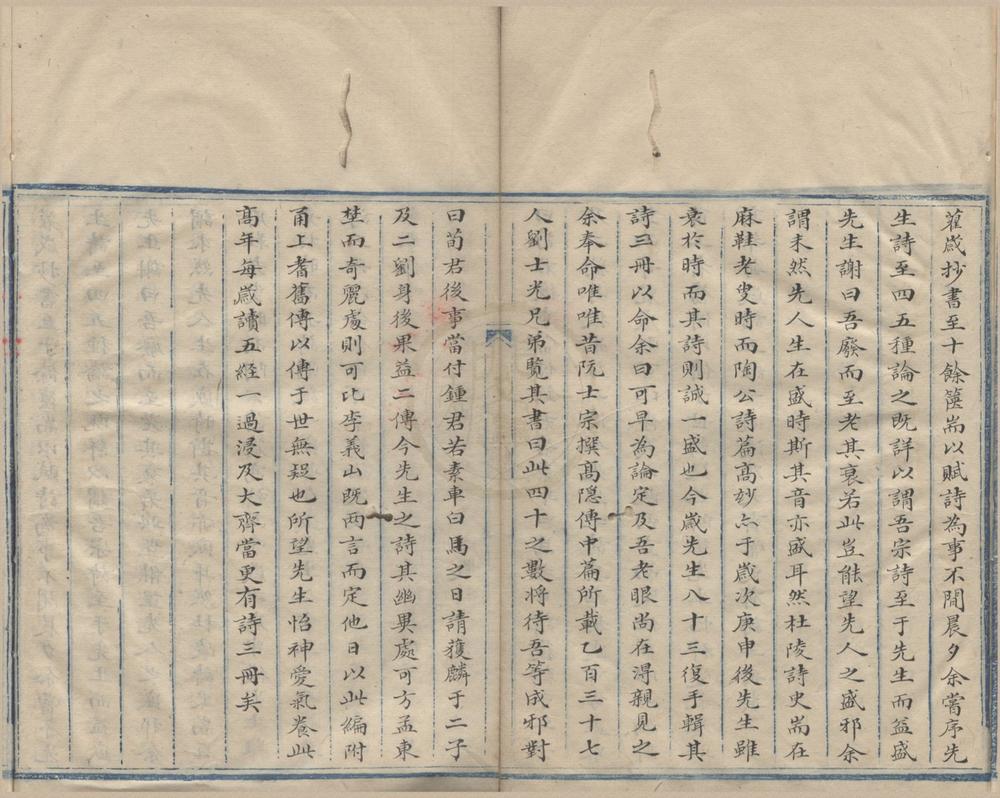 雚歲抄書至十餘簏耑以賦詩為事不閒晨夕余嘗序先
生詩至四五種論之既詳以謂吾宗詩至于先生而益盛
先生謝曰吾廢而至老其衰若此豈能望先人之盛邪余
謂未然先人生在盛時斯其音亦盛耳然杜陵詩史耑在
麻鞋老叟時而陶公詩篇高妙亦于歲次庚申後先生雖
衰於時而其詩則誠一盛也今歲先生八十三復手輯其
詩三冊以命余曰可早為論定及吾老眼尚在得親見之
余奉命唯唯昔阮士宗撰高隱傳中篇所載乙百三十七
人劉士光兄弟覽其書曰此四十之數將待吾等成邪對
曰荀君後事當付鍾君若素車白馬之日請獲麟于二子
及二劉身後果益二傳今先生之詩其幽異處可方孟東
埜而奇麗處則可比李義山既兩言而定他日以此編附
甬上耆舊傳以傳于世無疑也所望先生怡神愛氣養此
高年每歲讀五經一過浸及大齊當更有詩三冊矣